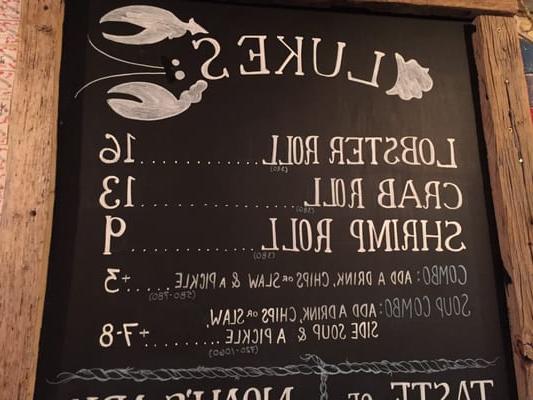 LUKE'S
LOBSTER ROLL.................16
(380)
CRAB ROLL....................13
(380)
SHRIMP ROLL.................9
(380)
COMBO: ADD A DRINK, CHIPS OR SLAW & A PICKLE......+3
(580-780)
SOUP COMBO: ADD A DRINK, CHIPS OR SLAW,
SIDE SOUP & A PICKLE..........+7-8
(720-1060)
TASTE OF